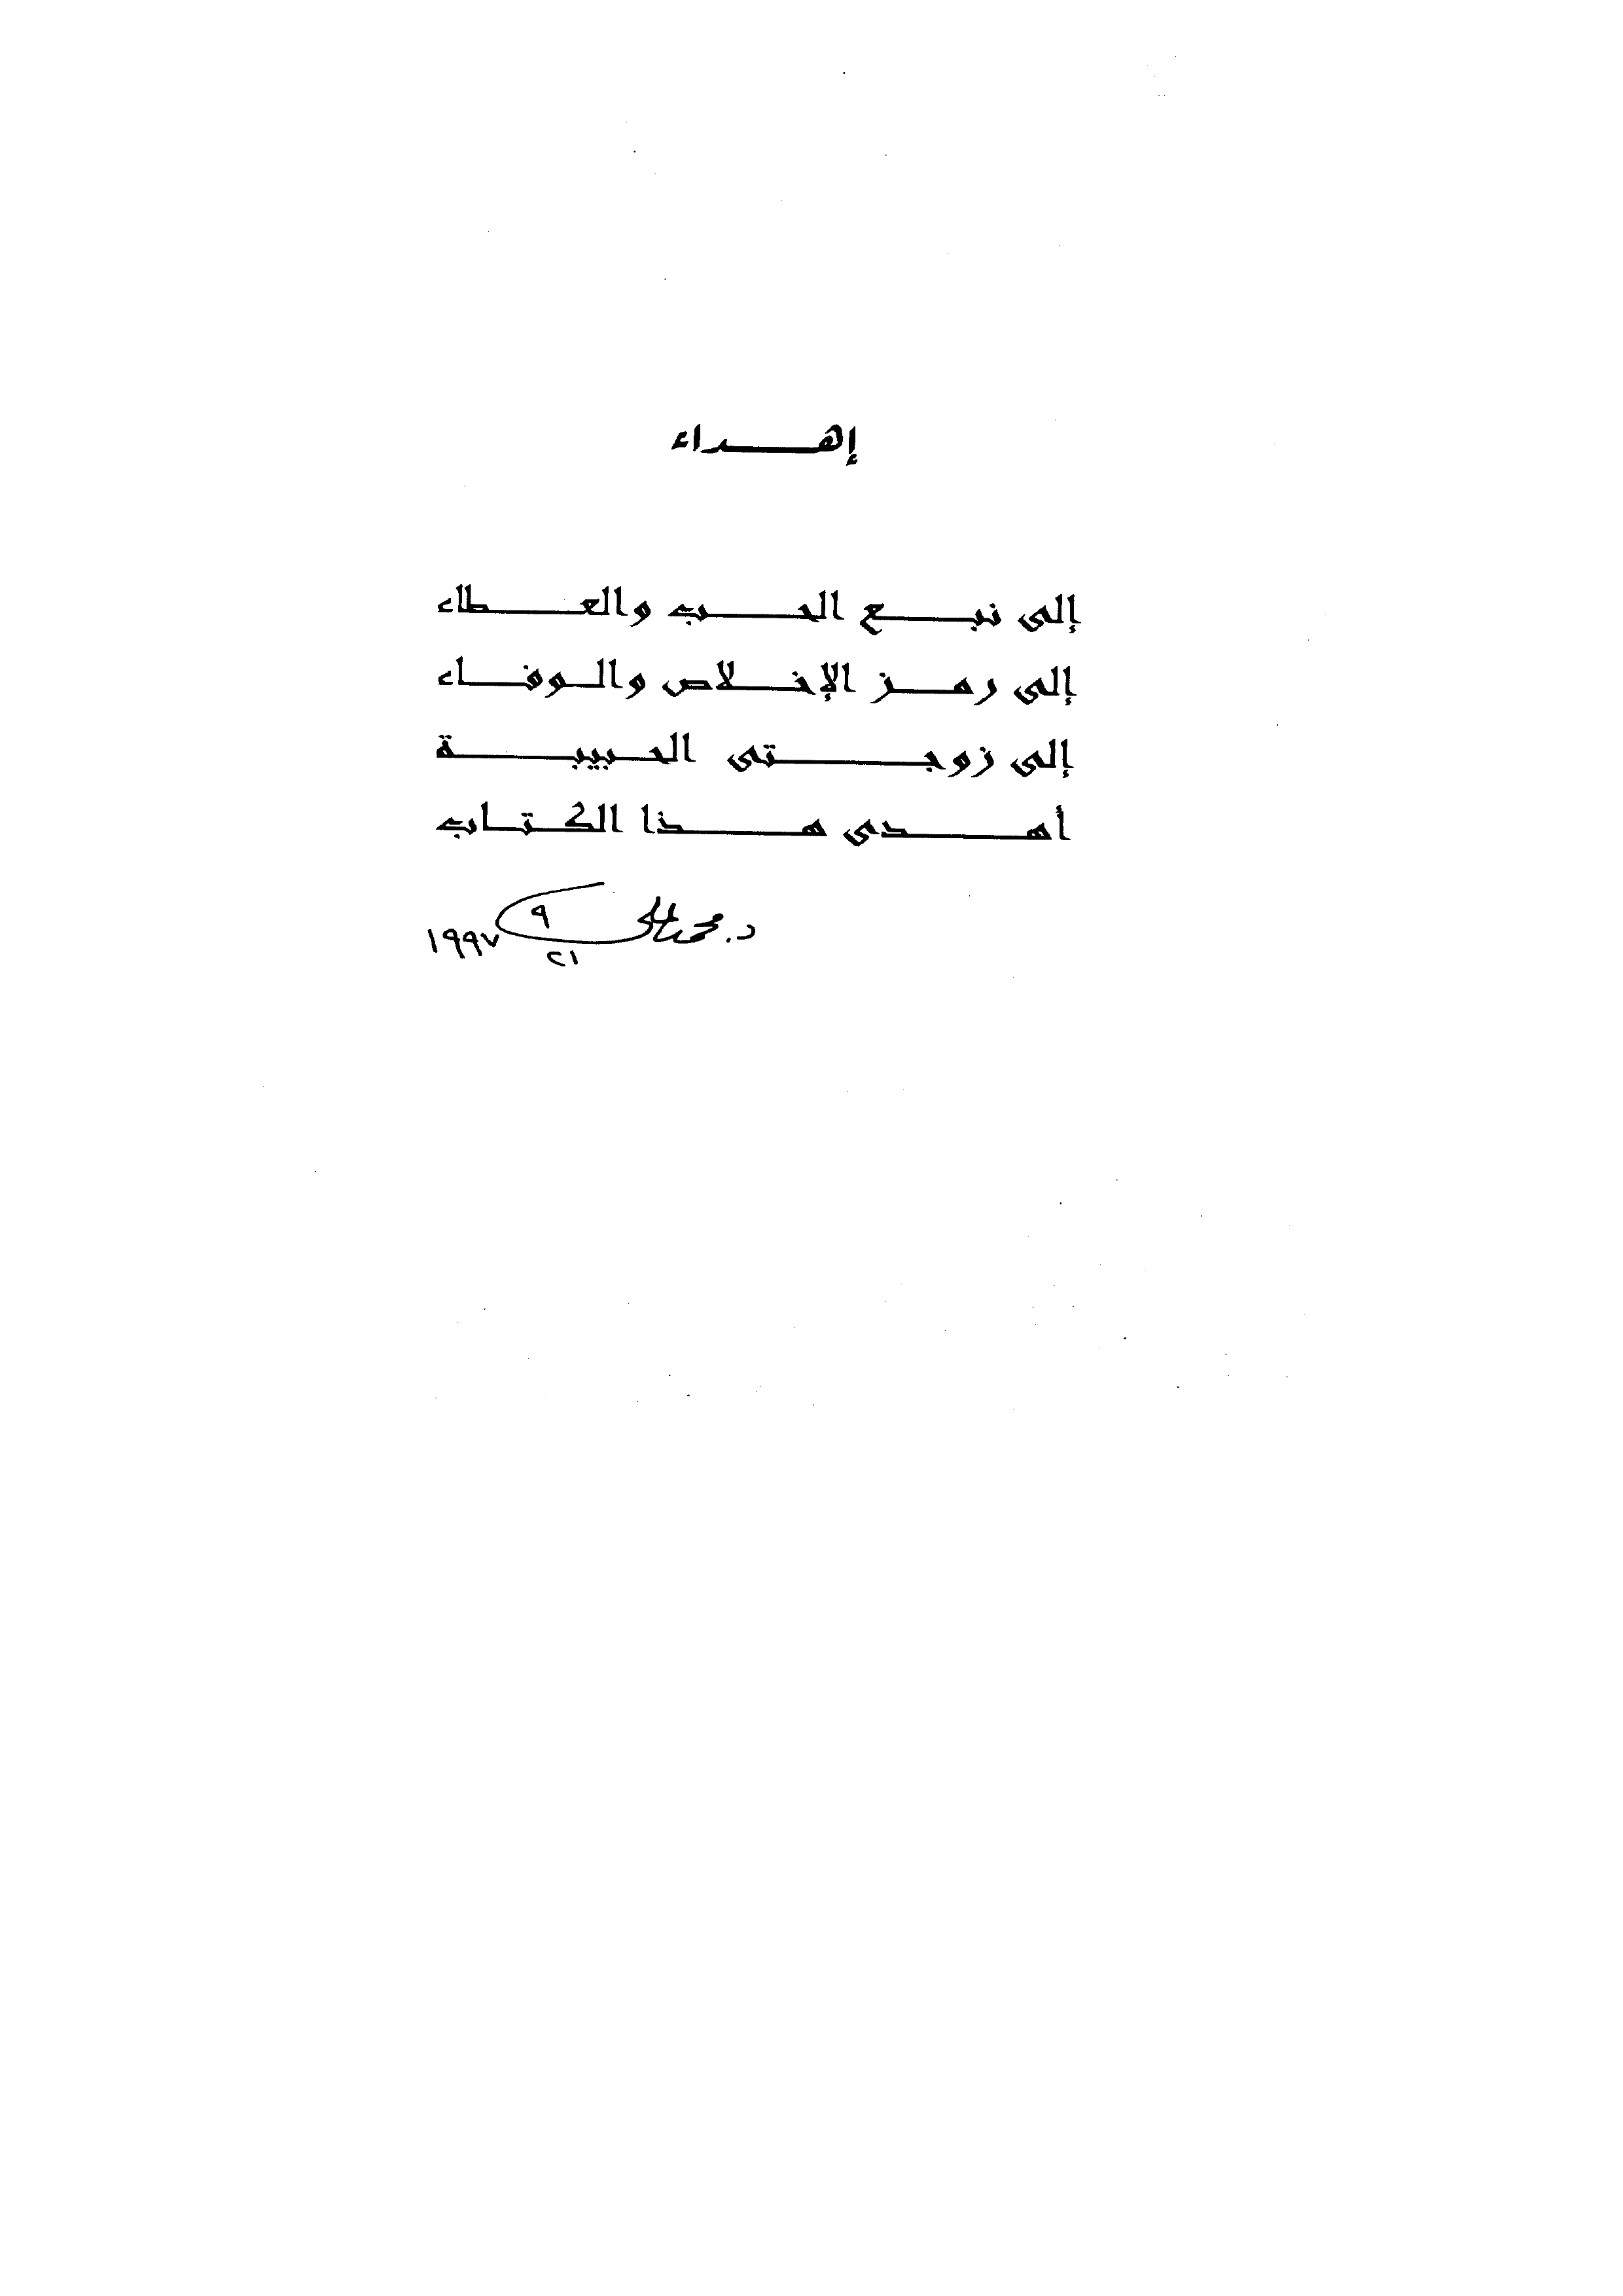 إهداء
إلى نبع الحب والعطاء
إلى رمز الإخلاص والوفاء
إلى زوجتى الحبيبة
أهدى هذا الكتاب
د. محمد
٩
٢١
١٩٩٧